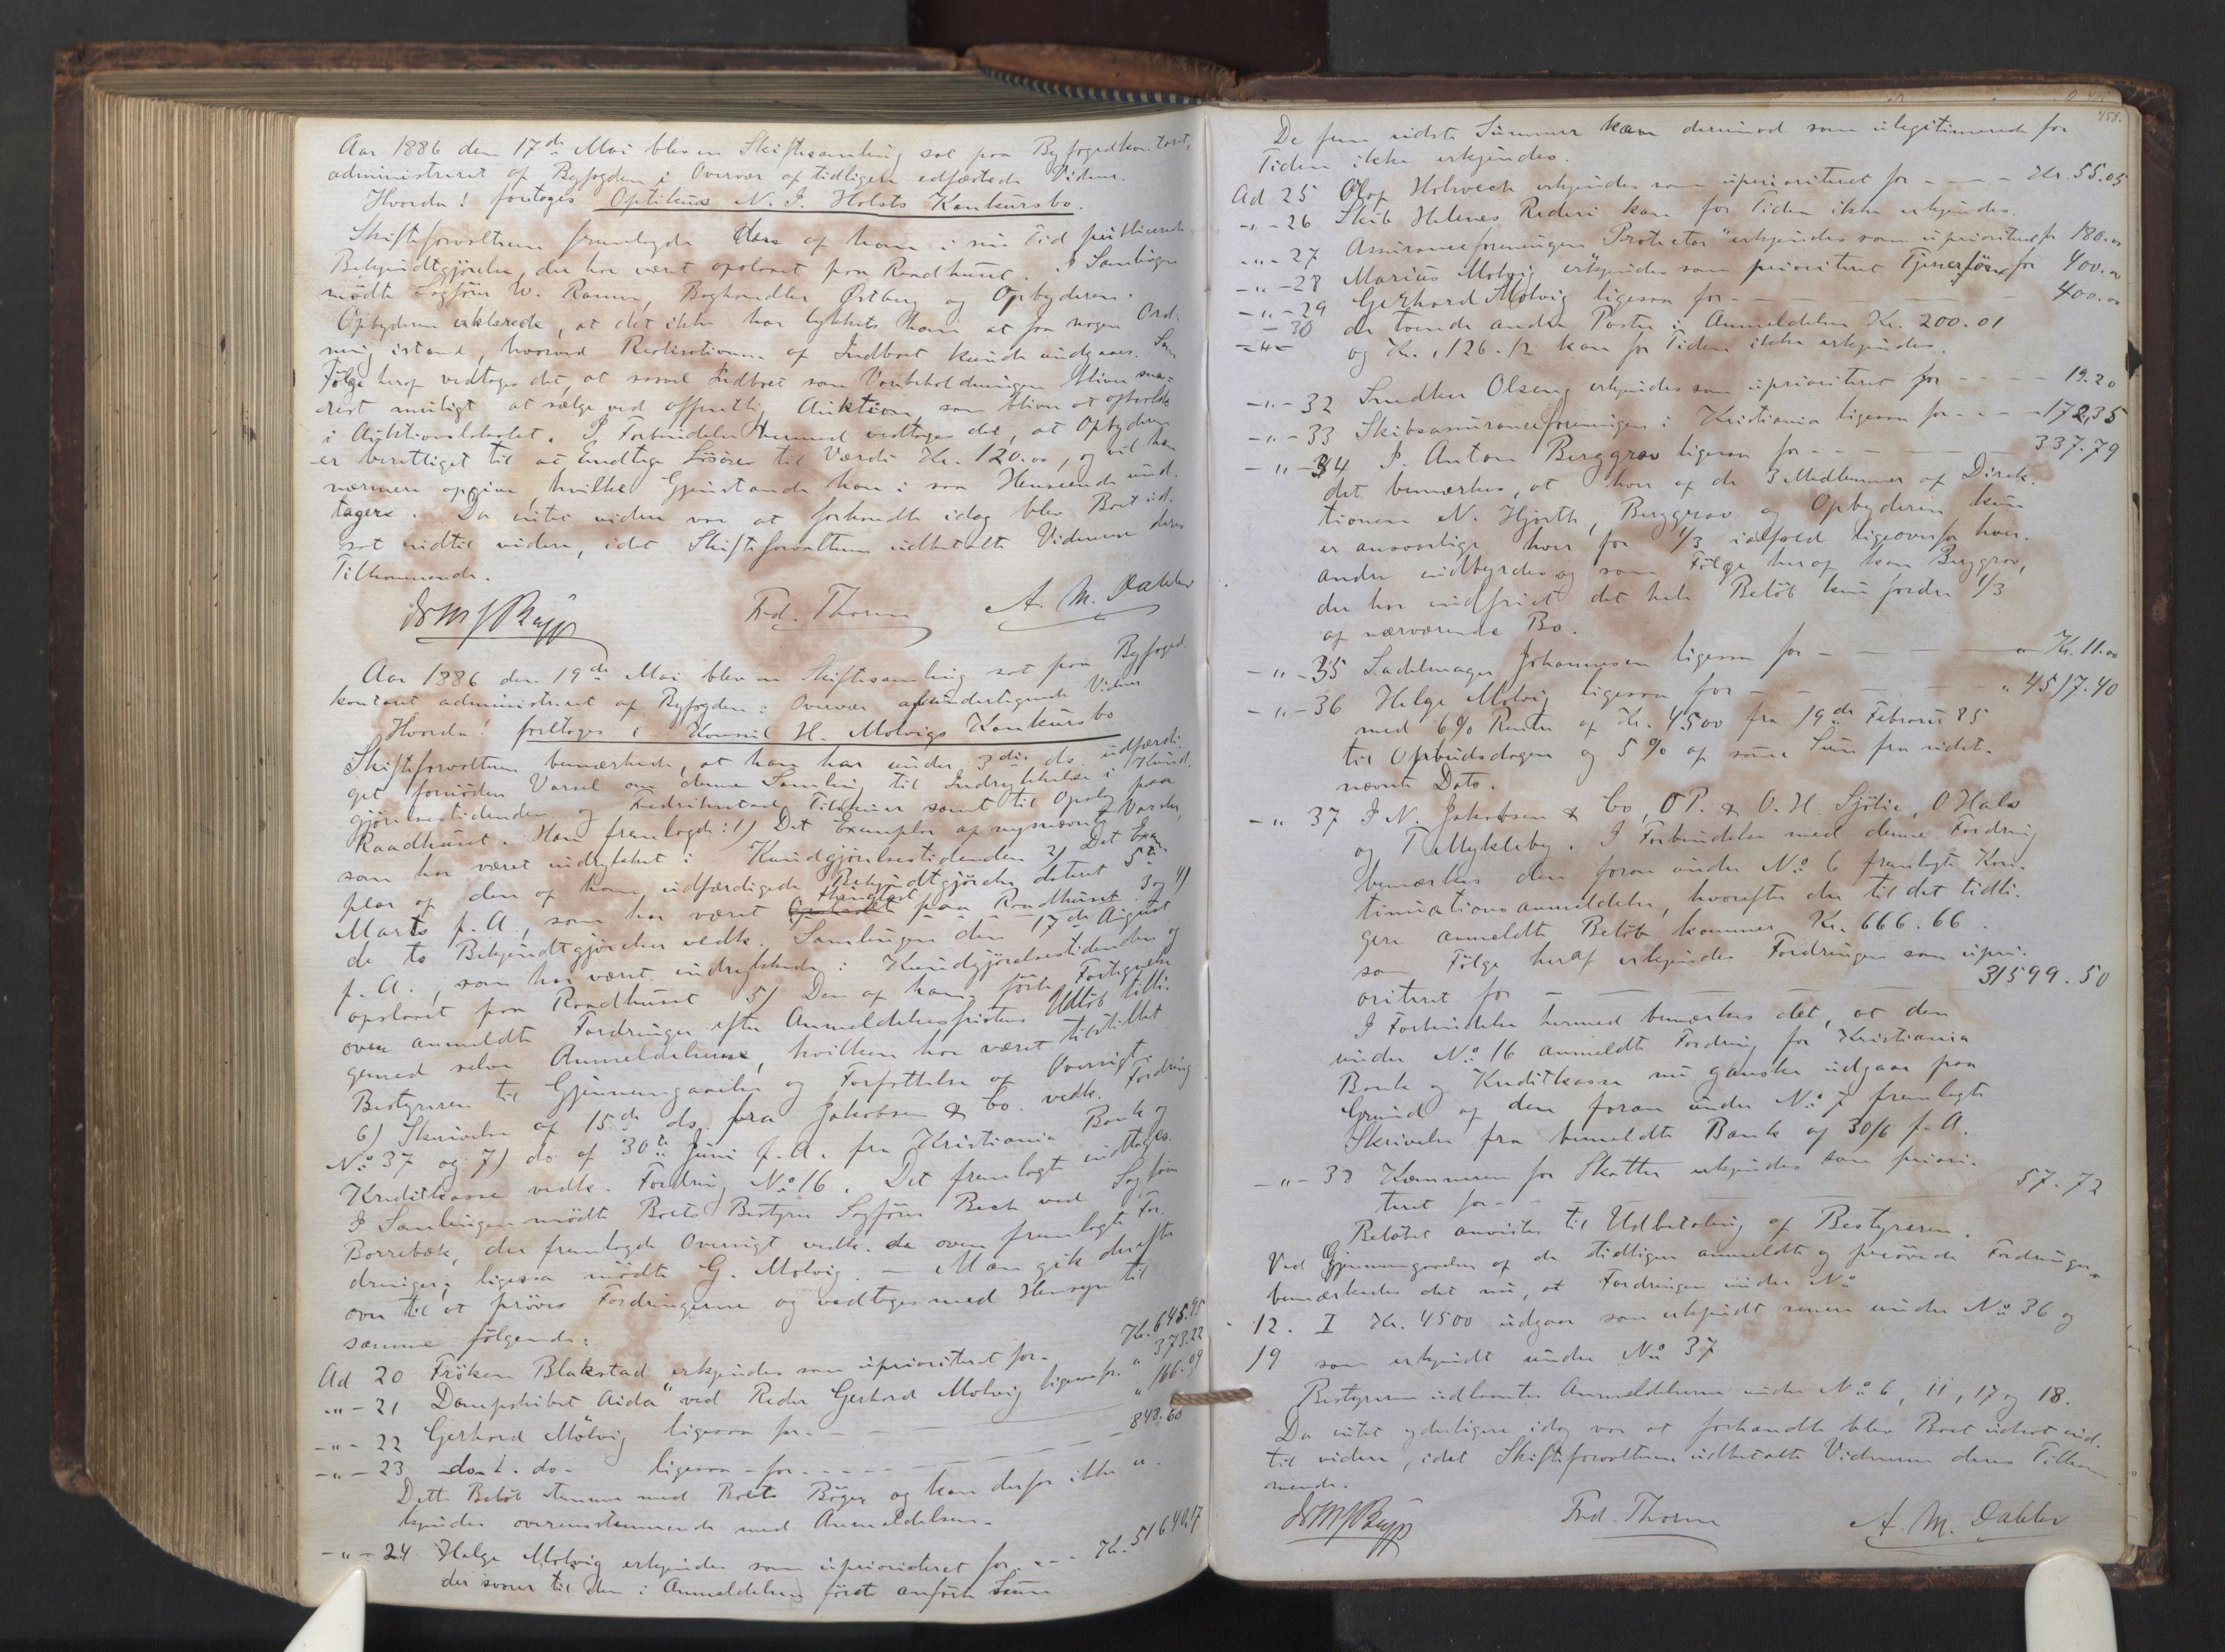 Aar 1886 den 17de Mai blev en Skiftesamling sat paa Byfogedkontoret,
administreret af Byfogden i Overvær af tidligere edfæstede Vidner.
Hvorda! foretoges Optikus N. J. Holsts Konkursbo.
Skifteforvalteren fremlagde den af ham i sin Tid publicerede
Bekjendtgjörelse, der har været opslaaet paa Raadhuset. I Samlingen
mödte Sagförer W. Ramm, Boghandler Östberg og Opbyderen.
Opbyderen erklærede, at det ikke har lykkets ham at faa nogen Ord-
ning istand, hvorved Realisationen af Indboet kunde undgaaes. Som
Fölge heraf vedtoges det, at saavel Indboet som Varebeholdningen bliver sna-
rest muligt at sælge ved offentlig Auktion, som bliver at afholde
i Auktionslokalet. I Forbindelse hermed vedtoges det, at Opbyderen
er berettiget til at undtage Lösöre til Værdi Kr. 120.00, og vil han
nærmere opgive, hvilke Gjenstande han i saa Henseende und-
tager. Da intet videre var at forhandle idag blev Boet ud-
sat indtil videre, idet Skifteforvalteren udbetalte Vidnerne deres
Tilkommende.
Fred. Thorne A. M. Dahler
Aar 1886 den 19de Mai blev en Skiftesamling sat paa Byfoged-
kontoret administreret af Byfogden i Overvær af undertegnede Vidner
Hvorda! foretoges i Konsul H. Mølvigs Konkursbo
Skifteforvalteren bemærkede, at han har under 3die ds. udfærdi-
get fornöden Varsel om denne Samling til Indrykkelse i Kund-
gjörelsestidenden og Fredrikstad Tilskuer samt til Opslag paa
Raadhuset. Han fremlagde: 1) Det Exemplar af nysnævnte Varsler,
som har været indrykket i Kundgjörelsestidenden 2) Det Exem-
plar af den af ham udfærdigede Bekjendtgjörelse dateret 5te
Marts f. A., som har været thinglæst paa Raadhuset. 3 og 4)
de to Bekjendtgjörelser vedk. Samlingen den 17de August
f. A., som har været indrykkede i Kundgjörelsestidenden og
opslaaet paa Raadhuset 5) Den af ham förte Fortegnelse
over anmeldte Fordringer efter Anmeldelsesfristens Udlöb tilli-
gemed selve Anmeldelserne, hvilken har været tilstillet
Bestyreren til Gjennemgaaelse og Forfattelse af Oversigt.
6) Skrivelse af 15de ds. fra Jakobsen & Co. vedk. Fordring
No 37 og 7) do af 30te Juni f. A. fra Kristiania Bank og
Kreditkasse vedk. Fordring No 16. Det fremlagte indtages.
I Samlingen mödte Boets Bestyrer Sagförer Bech ved Sagförer
Borrebæk, der fremlagde Oversigt vedk. de oven fremlagte For-
dringer; ligesaa mödte G. Mølvig. — Man gik derefter
over til at pröve Fordringerne og vedtoges med Hensyn til
samme fölgende:
Ad 20 Fröken Blakstad erkjendes som uprioriteret for - Kr. 645.95
-"- 21 Dampskibet "Aida" ved Reder Gerhard Mølvig ligesaa for " 373.22
-"- 22 Gerhard Mølvig ligesaa for - - - " 166.09
-"- 23 do. do. ligesaa - for - - - - 843.60
Dette Belöb stemmer med Boets Böger og kan derfor ikke er-
kjendes overensstemmende med Anmeldelsen.
-"- 24 Helge Mølvig erkjendes som uprioriteret for - - - Kr. 51640.17
der svarer til den i Anmeldelsen först anförte Sum
458.
De fem sidste Summer kan derimod som ulegitimerede for
Tiden ikke erkjendes.
Ad 25 Olof Holwech erkjendes som uprioriteret for - - - Kr. 55.05
-"- 26 Skib Helenes Rederi kan for Tiden ikke erkjendes.
-"- 27 Assuranceforeningen "Protector" erkjendes som uprioriteret for 180.00
-"- 28 Marius Mølvig erkjendes som prioriteret Tjenerlön for 400.00
-"- 29 Gerhard Mølvig ligesaa for - - - 400.00
- 30 de tvende andre Poster i Anmeldelsen Kr. 200.01
og Kr. 1126.12 kan for Tiden ikke erkjendes.
-"- 32 Snedker Olsen erkjendes som uprioriteret for - - - - 19.20
-"- 33 Skibsassuranceforeningen i Kristiania ligesaa for - - - 172,35
-"- 34 J. Anton Berggrav ligesaa for - - - 337.79
det bemærkes, at hver af de 3 Medlemmer af Direk-
tionen N. Hjorth, Berggrav og Opbyderen kun
er ansvarlige hver for 1/3 ialfald ligeoverfor hver-
andre indbyrdes og som Fölge heraf kan Berggrav,
der har indfriet det hele Belöb kun fordre 1/3
af nærværende Bo.
-"- 35 Sadelmager Johannesen ligesaa for - - - Kr. 11.00
-"- 36 Helge Mølvig ligesaa for - - - " 4517.40
med 6% Renter af Kr. 4500 fra 19de Februar 85
til Opbudsdagen og 5% af samme Sum fra sidst-
nævnte Dato.
-"- 37 J N. Jakobsen & Co, O P. & O. H. Sjölie, O Halv
og T Mykleby. I Forbindelse med denne Fordring
bemærkes den foran under No 6 fremlagte Kon-
tinuationsanmeldelse, hvorefter der til det tidli-
gere anmeldte Belöb kommer Kr. 666.66.
som Fölge heraf erkjendes Fordringen som upri-
oriteret for - - - 31599.50
I Forbindelse hermed bemærkes det, at den
under No 16 anmeldte Fordring for Kristiania
Bank og Kreditkasse nu ganske udgaar paa
Grund af den foran under No 7 fremlagte
Skrivelse fra bemeldte Bank af 30/6 f. A.
-"- 38 Kæmneren for Skatter erkjendes som priori-
teret for - - - 57.72
Belöbet anvistes til Udbetaling af Bestyreren.
Ved Gjennemgaaelsen af de tidligere anmeldte og prövede Fordringer
bemærkedes det nu, at Fordringen under No
12. I Kr. 4500 udgaar som erkjendt senere under No 36 og
19 som erkjendt under No 37
Bestyreren udleverte Anmeldelserne under No 6, 11, 17 og 18.
Da intet yderligere idag var at forhandle blev Boet udsat ind-
til videre, idet Skifteforvalteren udbetalte Vidnerne deres Tilkom-
mende.
Fred. Thorne A. M. Dahler